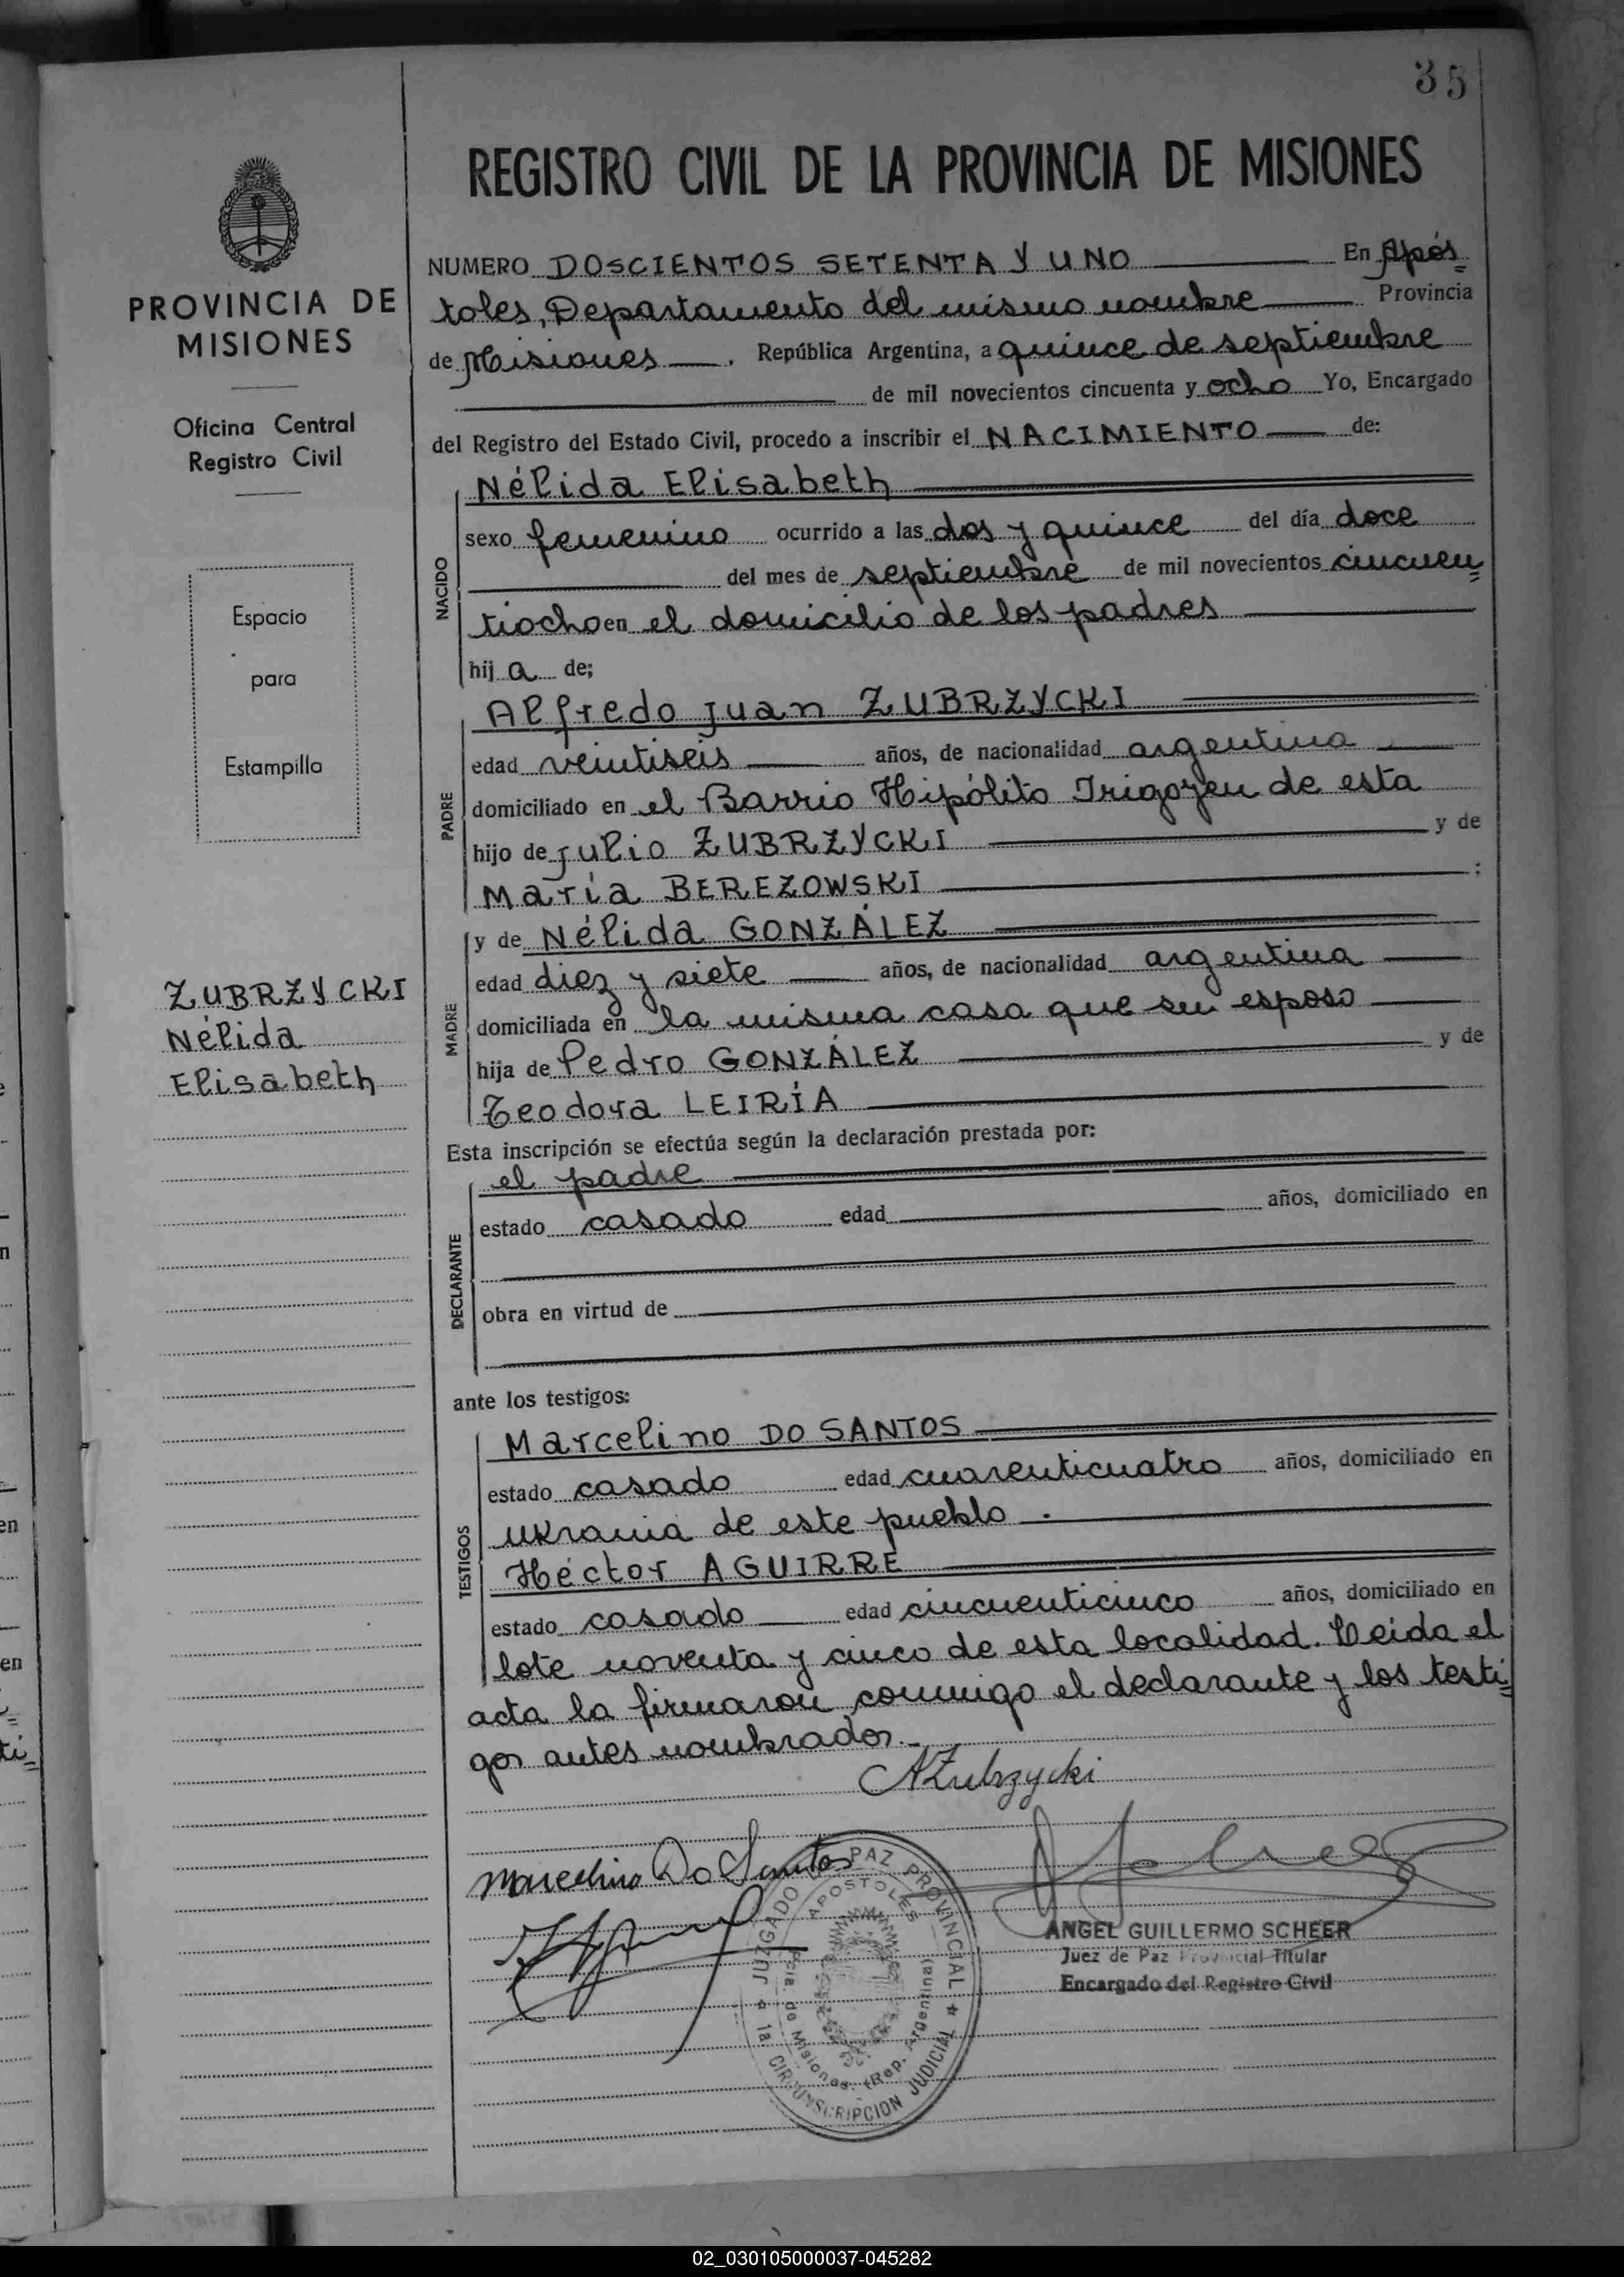 35
REGISTRO CIVIL DE LA PROVINCIA DE MISIONES
PROVINCIA DE
MISIONES
Oficina Central
Registro Civil
Espacio
para
Estampilla
ZUBRZYCKI
Nélida
Elisabeth
NUMERO DOSCIENTOS SETENTA Y UNO En Após=
toles, Departamento del mismo nombre Provincia
de Misiones . República Argentina, a quince de septiembre
de mil novecientos cincuenta y ocho Yo, Encargado
del Registro del Estado Civil, procedo a inscribir el NACIMIENTO de:
NACIDO
Nélida Elisabeth
sexo femenino ocurrido a las dos y quince del día doce
del mes de septiembre de mil novecientos cincuen=
tiocho en el domicilio de los padres
hija de;
PADRE
Alfredo Juan ZUBRZYCKI
edad veintiseis años, de nacionalidad argentina
domiciliado en el Barrio Hipólito Irigoyen de esta
hijo de Julio ZUBRZYCKI y de
María BEREZOWSKI ;
MADRE
y de Nélida GONZÁLEZ
edad diez y siete años, de nacionalidad argentina
domiciliada en la misma casa que su esposo
hija de Pedro GONZÁLEZ y de
Teodora LEIRÍA
Esta inscripción se efectúa según la declaración prestada por:
DECLARANTE
el padre
estado casado edad años, domiciliado en
obra en virtud de
ante los testigos:
TESTIGOS
Marcelino DO SANTOS
estado casado edad cuarenticuatro años, domiciliado en
Ukrania de este pueblo .
Héctor AGUIRRE
estado casado edad cincuenticinco años, domiciliado en
lote noventa y cinco de esta localidad. Leida el
acta la firmaron conmigo el declarante y los testi=
gos antes nombrados.-
AZubrzycki
Marcelino Do Santos
JUZGADO PAZ PROVINCIAL
APOSTOLES
Pcia. de Misiones. (Rep. Argentina)
1a. CIRCUNSCRIPCION JUDICIAL
ANGEL GUILLERMO SCHEER
Juez de Paz Provincial Titular
Encargado del Registro Civil
02_030105000037-045282